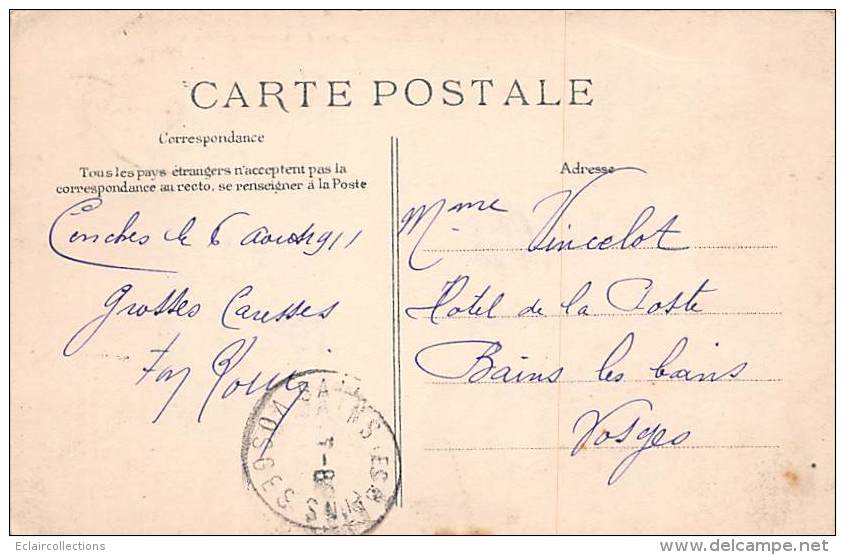 CARTE POSTALE
Correspondance
Tous les pays étrangers n'acceptent pas la
correspondance au recto, se renseigner à la Poste
Adresse
Conches le 6 Aout 1911
Grosses Caresses
Mme Vincelot
Hotel de la Poste
Bains les bains
Vosges
BAINS LES BAINS VOSGES
Eclaircollections
www.delcampe.net